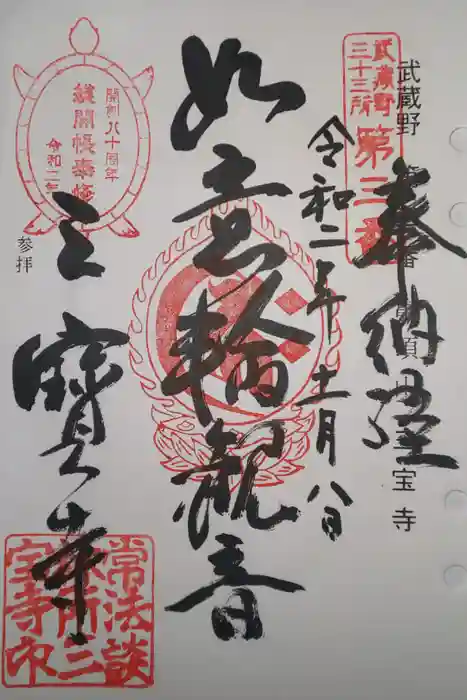 武蔵野三十三所
第三番
武蔵野
宝寺
奉納経
令和二年十一月八日
如意輪観音
開創八十周年
御開帳奉修
令和二年
参拝
三寳寺
常法談
所三
宝寺印